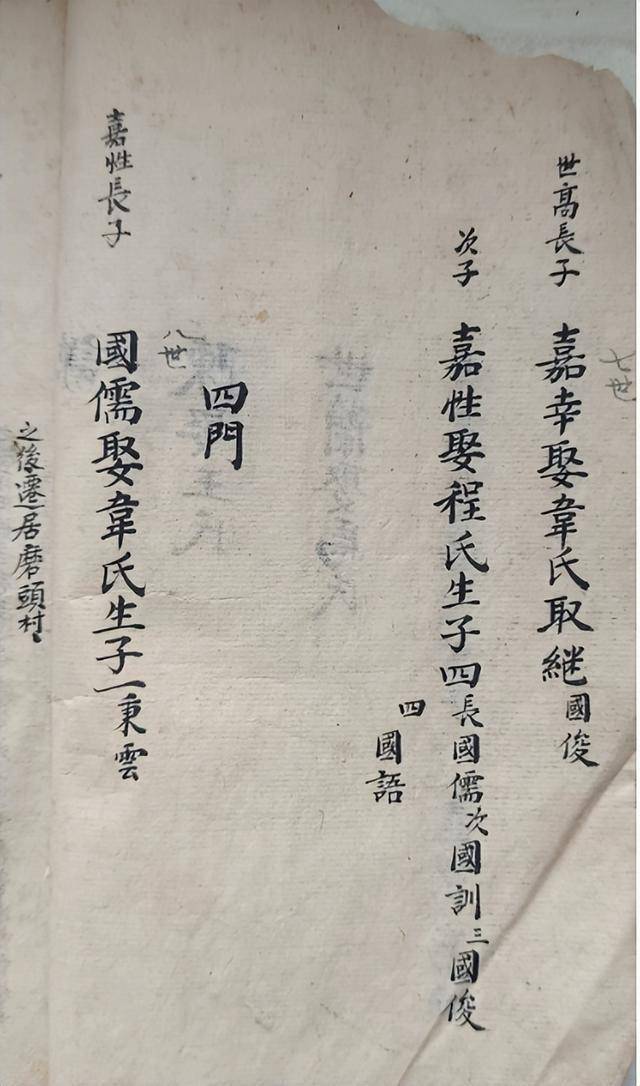 七世
世高長子
嘉幸娶韋氏取継國俊
次子
嘉性娶程氏生子四長國儒次國訓三國俊
四國語
四門
八世
嘉性長子
國儒娶韋氏生子一秉雲
之後遷居磨頭村